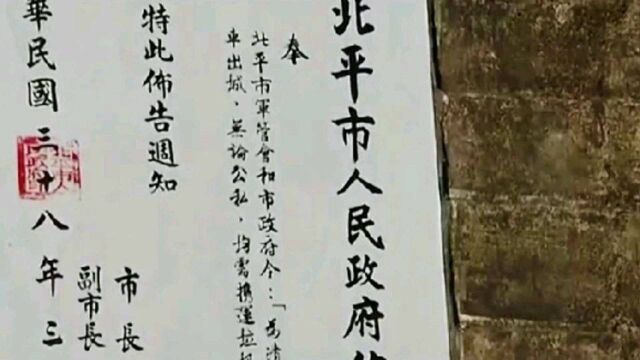 北平市人民政府
奉
北平市軍管會和市政府令：「為清
車出城，無論公私，均需攜運垃圾
特此佈告週知
市長
副市長
華民國三十八年三